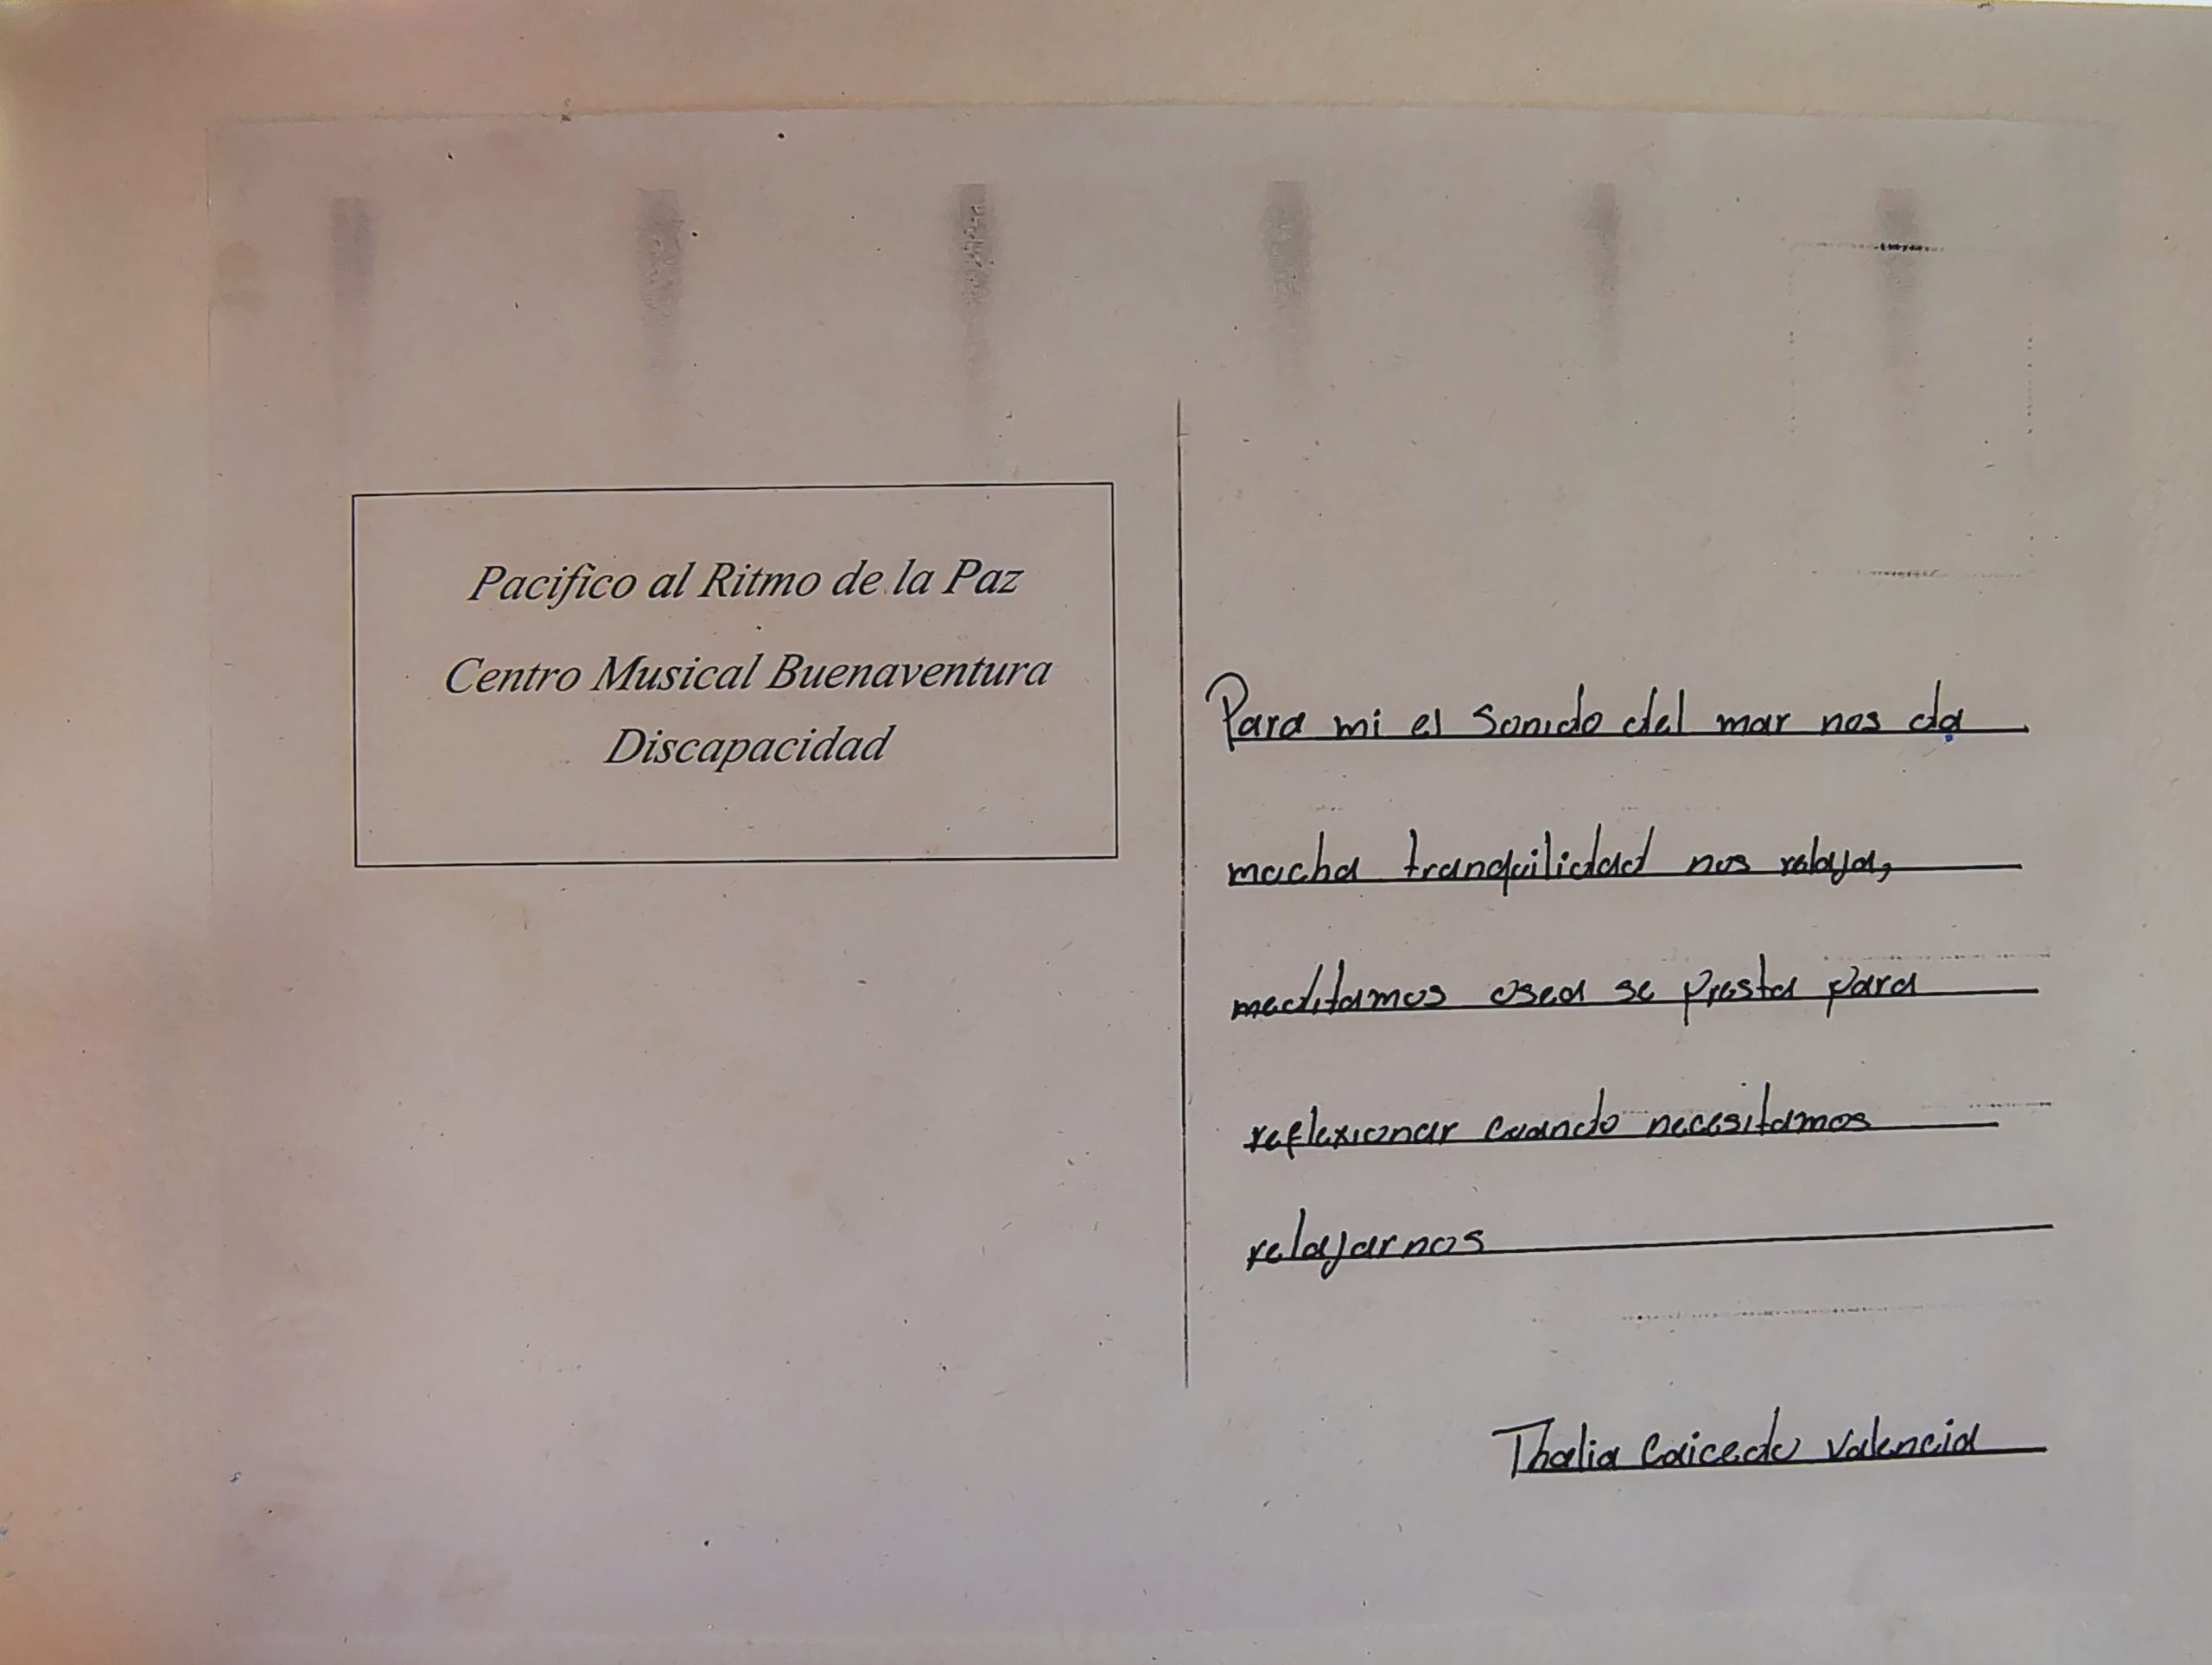 Pacifico al Ritmo de la Paz
Centro Musical Buenaventura
Discapacidad
Para mi el Sonido del mar nos da
mucha tranquilidad nos relaja,
meditamos osea se presta para
reflexionar cuando necesitamos
relajarnos
Thalia Caicedo Valencia